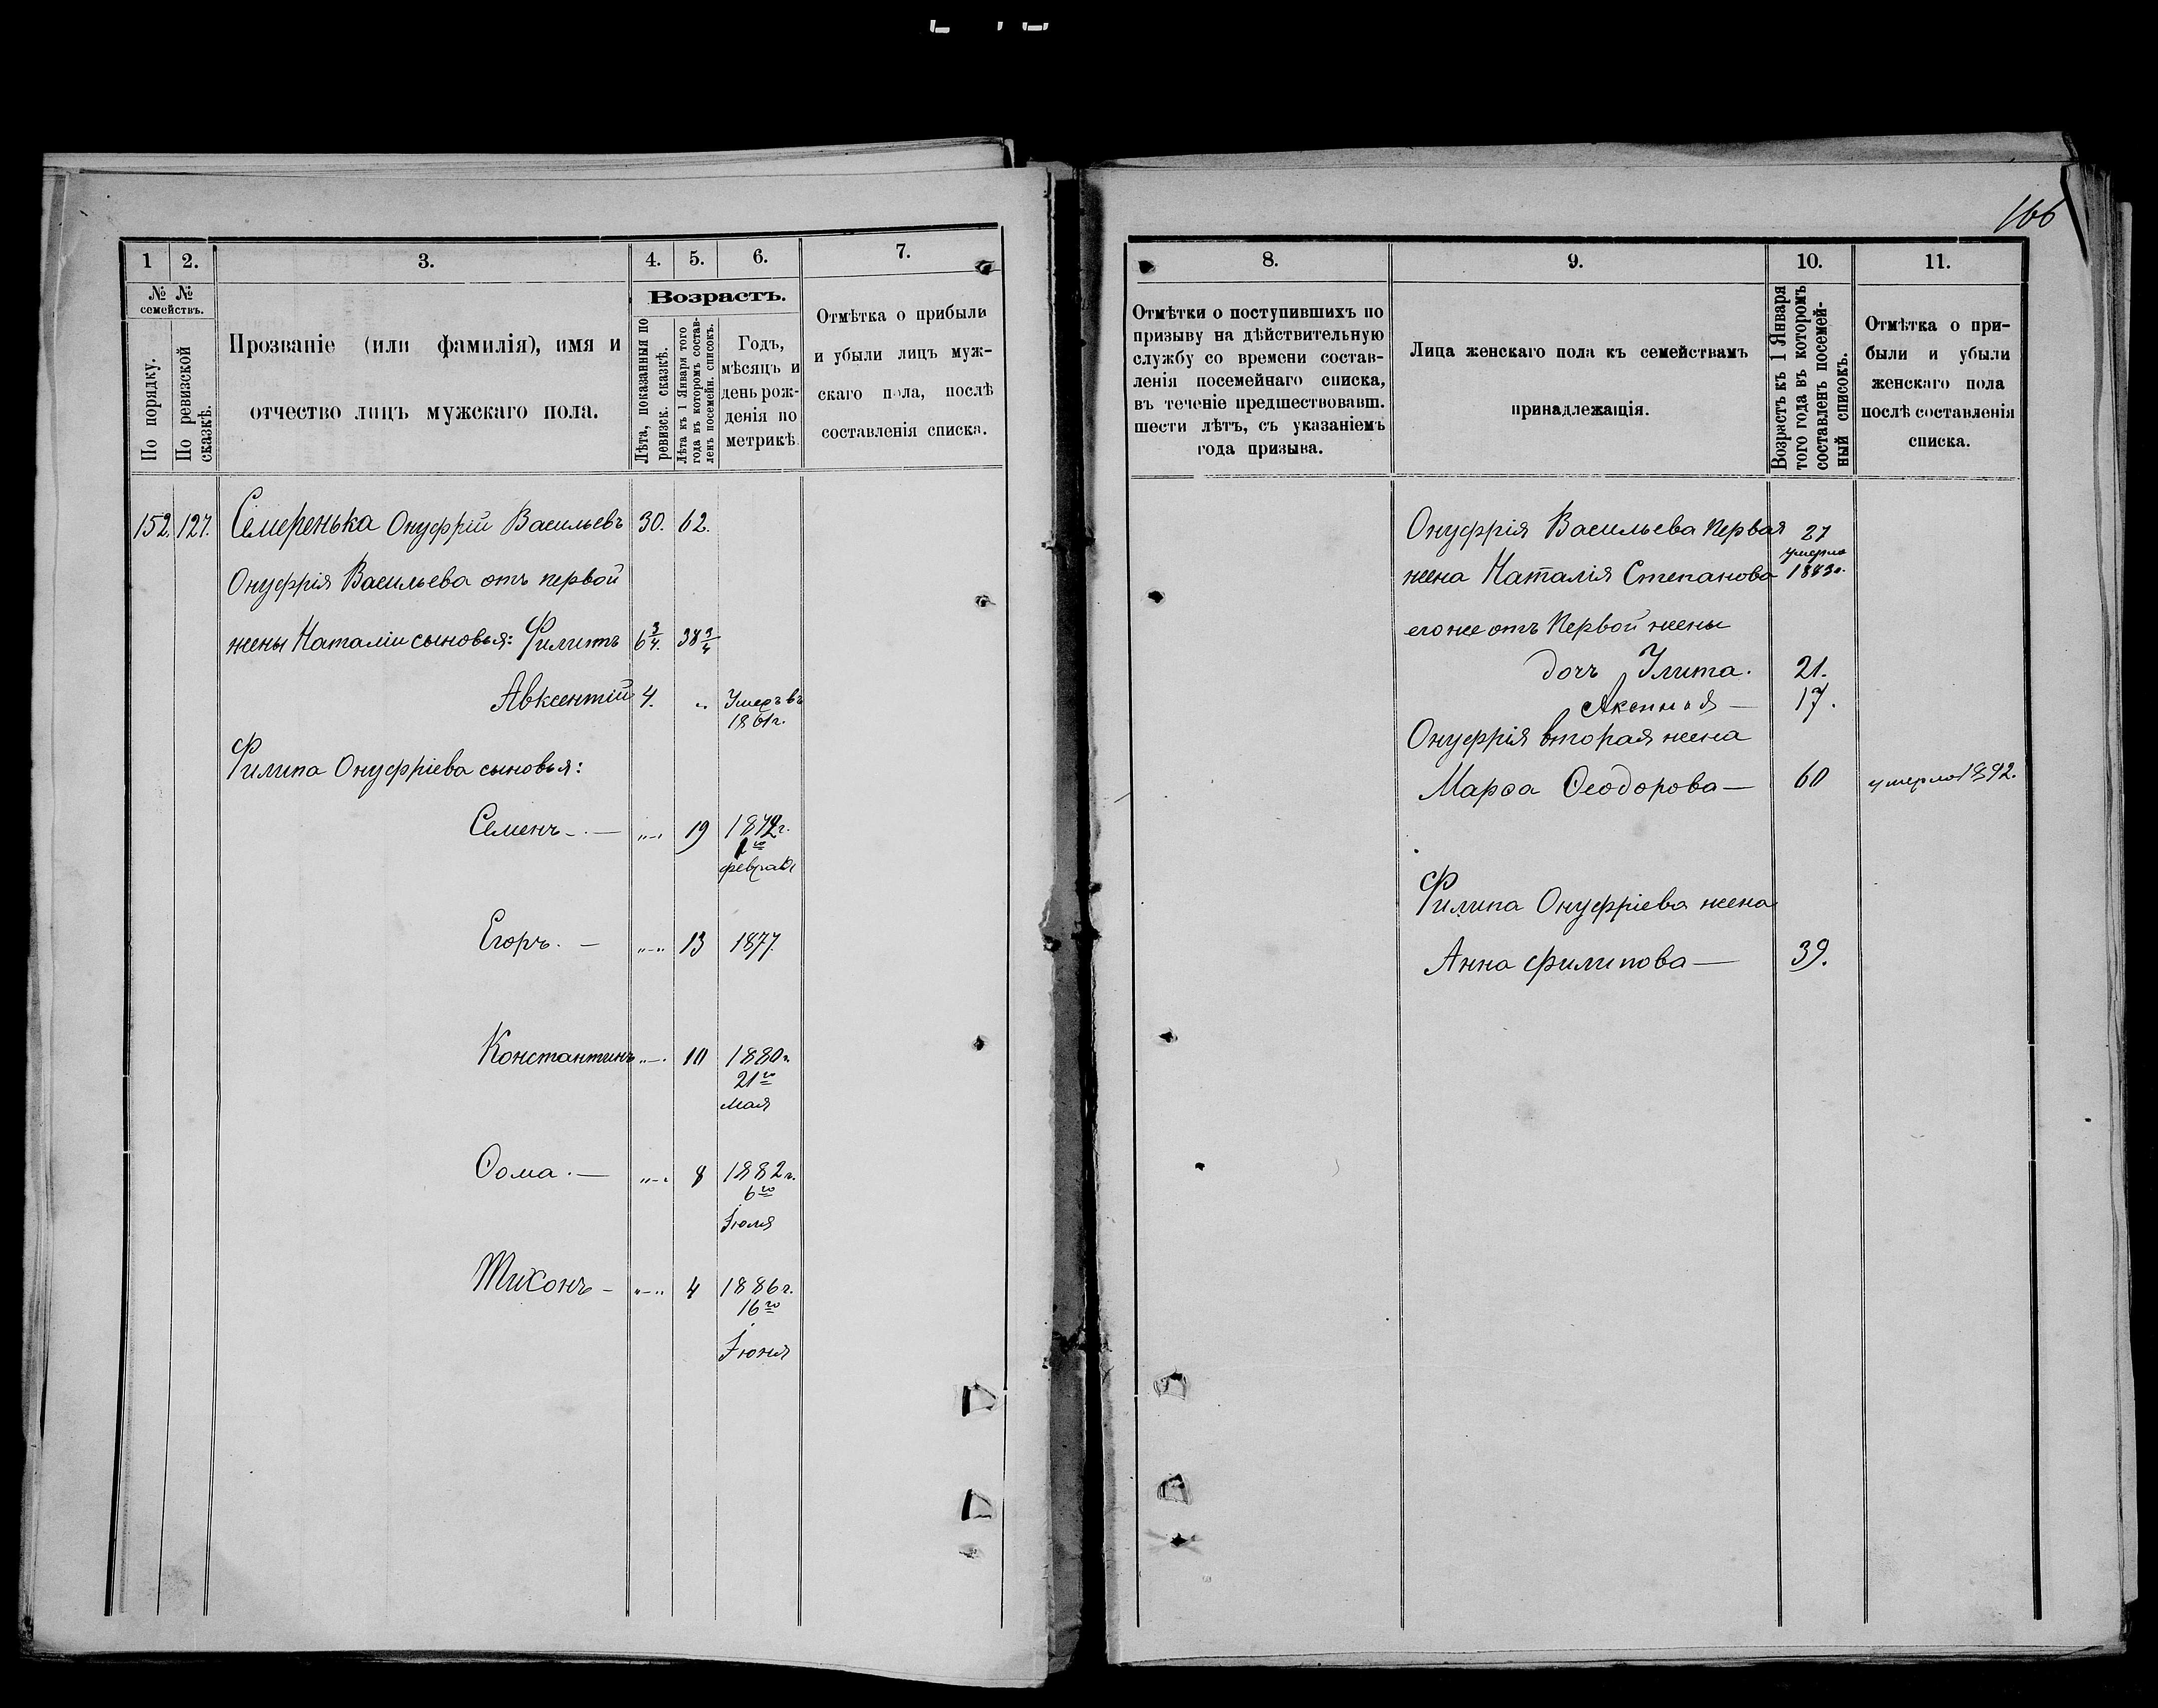 166
1 2. 3. 4. 5. 6. 7.
№ №
семействъ.
По порядку.
По ревизской
сказкѣ.
Прозваніе (или фамилія), имя и
отчество лицъ мужскаго пола.
Возрастъ.
Лѣта, показанныя по
ревизск. сказкѣ.
Лѣта къ 1 Января того
года въ которомъ состав-
ленъ посемейн. списокъ.
Годъ,
мѣсяцъ и
день рож-
денія по
метрикѣ
Отмѣтка о прибыли
и убыли лицъ муж-
скаго пола, послѣ
составленія списка.
152. 127. Семеренька Онуфрій Васильевъ 30. 62.
Онуфрія Васильева отъ первой
жены Наталіи сыновья: Филипъ 6 3/4. 38 3/4
Авксентій 4. „ Умеръ въ
1861 г.
Филипа Онуфріева сыновья:
Семенъ — „—„ 19 1872 г.
1го
февраля
Егоръ. — „—„ 13 1877.
Константинъ „—„ 10 1880 г.
21го
мая
Ѳома. — „—„ 8 1882 г.
6го
Іюля
Тихонъ — „—„ 4 1886 г.
16го
Іюня
8. 9. 10. 11.
Отмѣтки о поступившихъ по
призыву на дѣйствительную
службу со времени состав-
ленія посемейнаго списка,
въ теченіе предшествовавш.
шести лѣтъ, съ указаніемъ
года призыва.
Лица женскаго пола къ семействамъ
принадлежащія.
Возрастъ къ 1 Января
того года въ которомъ
составленъ посемей-
ный списокъ.
Отмѣтка о при-
были и убыли
женскаго пола
послѣ составленія
списка.
Онуфрія Васильева первая 27
умерла
жена Наталія Степанова
его же отъ Первой жены
дочь Улита. 21.
Аксинья — 17.
Онуфрія вторая жена
Марѳа Ѳеодорова — 60 умерла 1892.
Филипа Онуфріева жена
Анна Филипова — 39.